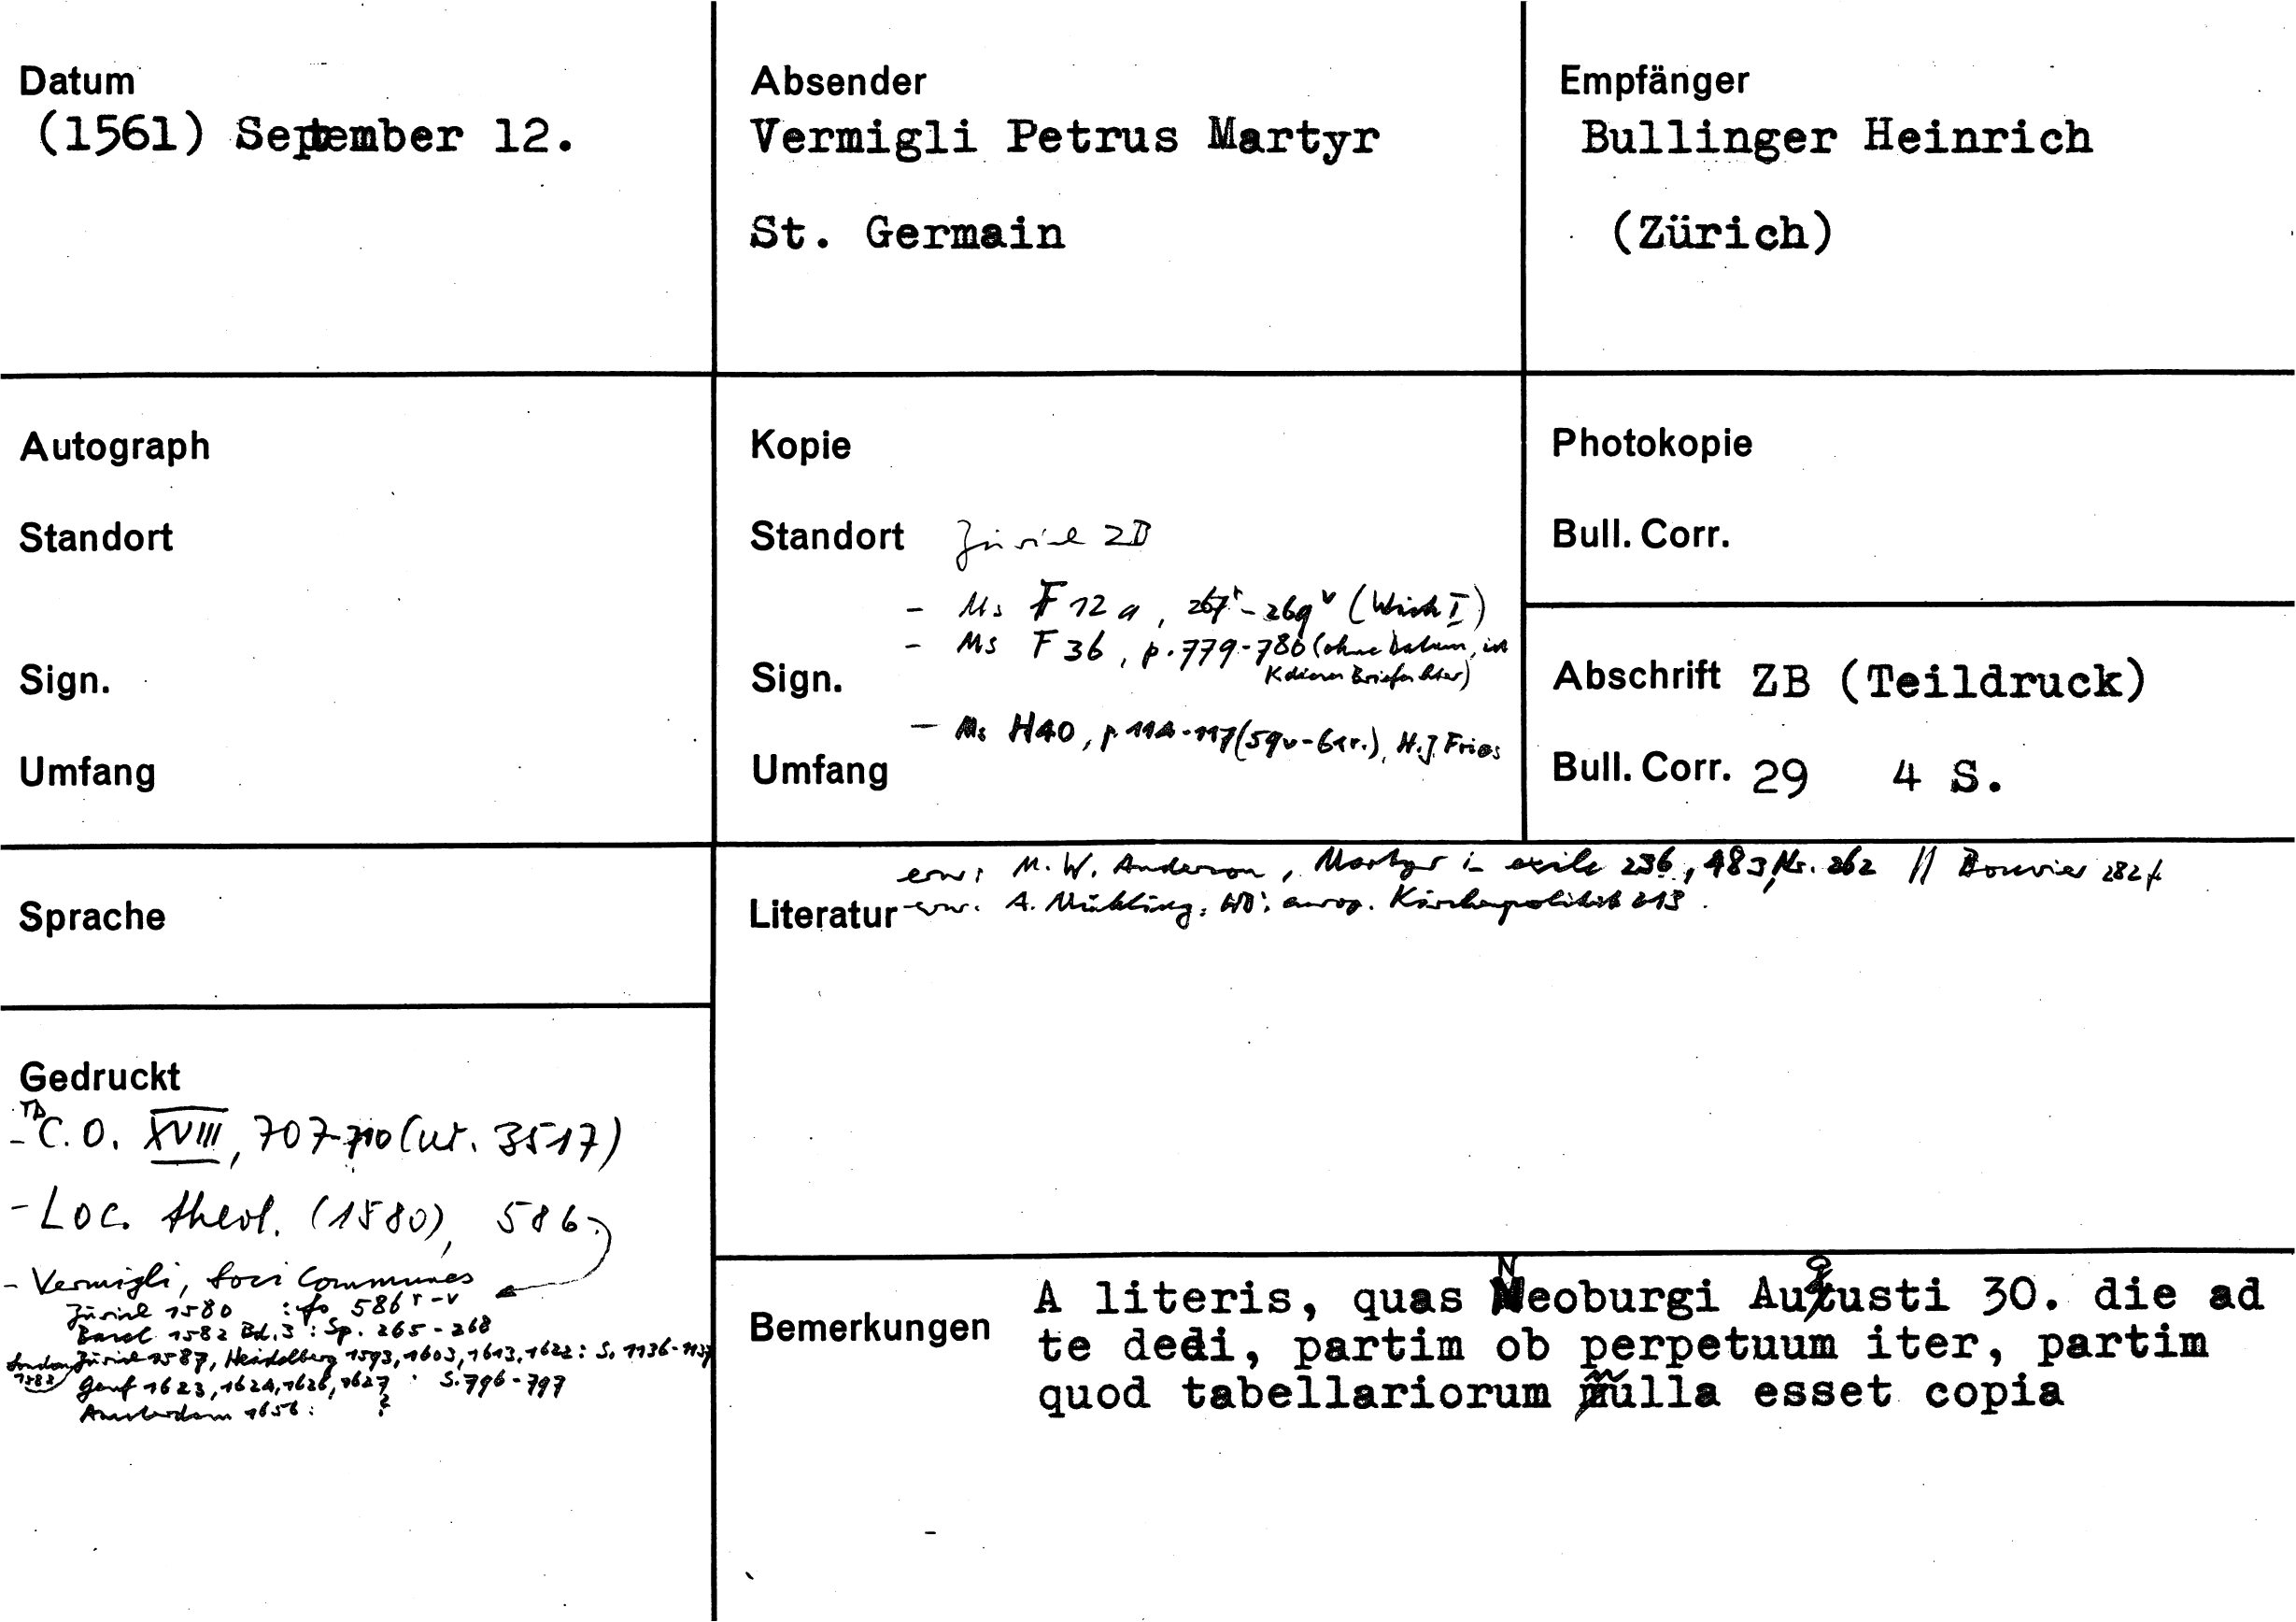 Datum
(1561) September 12.
Absender
Vermigli Petrus Martyr
St. Germain
Empfänger
Bullinger Heinrich
(Zürich)
Autograph
Standort
Sign.
Umfang
Kopie
Standort Zürich ZB
- Ms F 12 a, 267r-269v (Wick I)
- Ms F 36, p. 779-786 (ohne Datum, in
Sign.
- Ms H40, p 114-117 (59v-61r.), H.J. Fries
Umfang
Photokopie
Bull. Corr.
Abschrift ZB (Teildruck)
Bull. Corr. 29 4 S.
Sprache
erw: M. W. Anderson, Martyr in exile 236, 483, Nr. 262 // Bouvier 282f
Literatur erw. A. Mühling: HB: europ. Kirchenpolitik 213.
Gedruckt
TD
- C.O. XVIII, 707-710 (Nr. 3517)
- Loc. theol. (1580), 586.
- Vermigli, Loci Communes
Zürich 1580 : fo 586 r-v
Basel 1582 Bd. 3 : Sp. 265-268
London Zürich 1587, Heidelberg 1593, 1603, 1613, 1622: S. 1136-1137
1583 Genf 1623, 1624, 1626, 1627 : S. 796-797
Amsterdam 1656: ?
Bemerkungen
A literis, quas Neoburgi Augusti 30. die ad
te dedi, partim ob perpetuum iter, partim
quod tabellariorum nulla esset copia